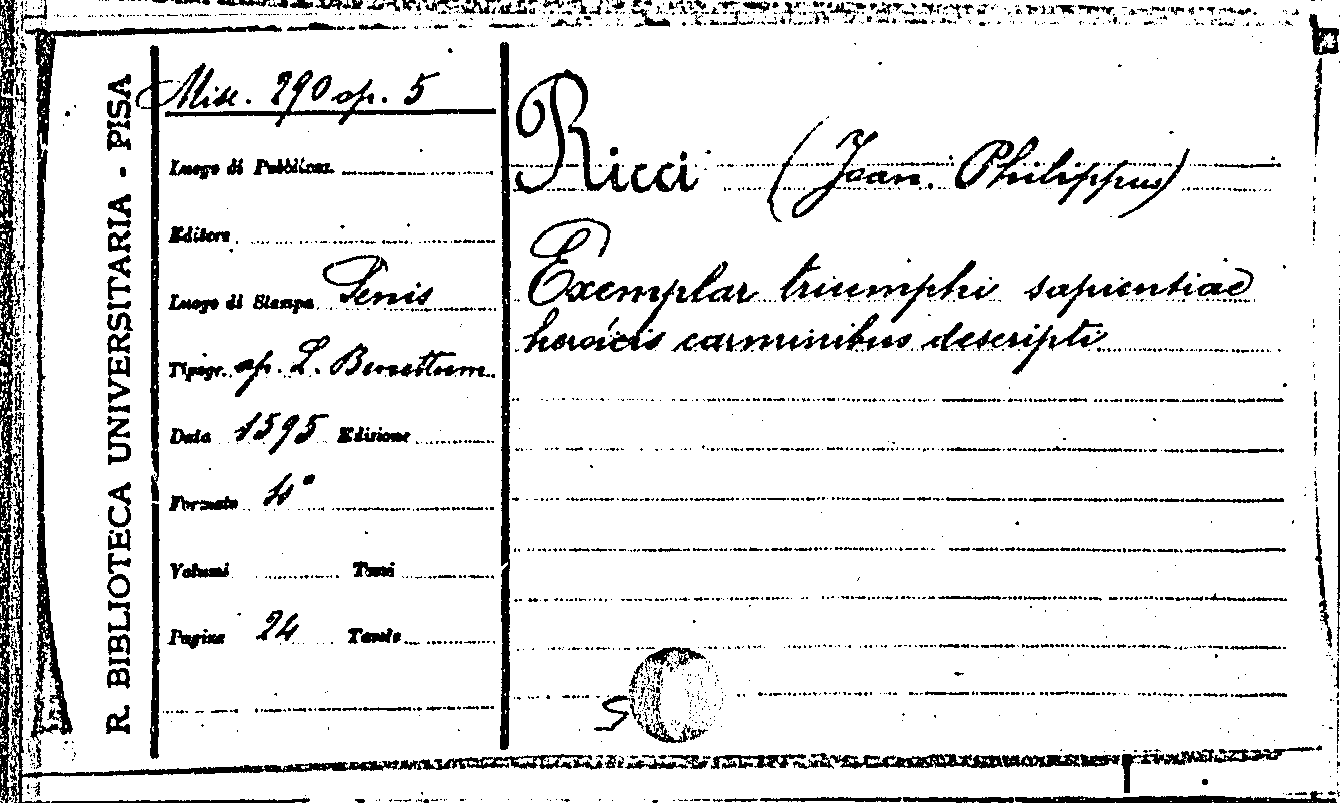 R. BIBLIOTECA UNIVERSITARIA - PISA
Misc. 290 op. 5
Luogo di Pubblicaz.
Editore
Luogo di Stampa Senis
Tipogr. ap. L. Bonettum
Data 1595 Edizione
Formato 4°
Volumi Tomi
Pagine 24 Tavole
Ricci (Joan. Philippus)
Exemplar triumphi sapientiae
heroicis carminibus descripti